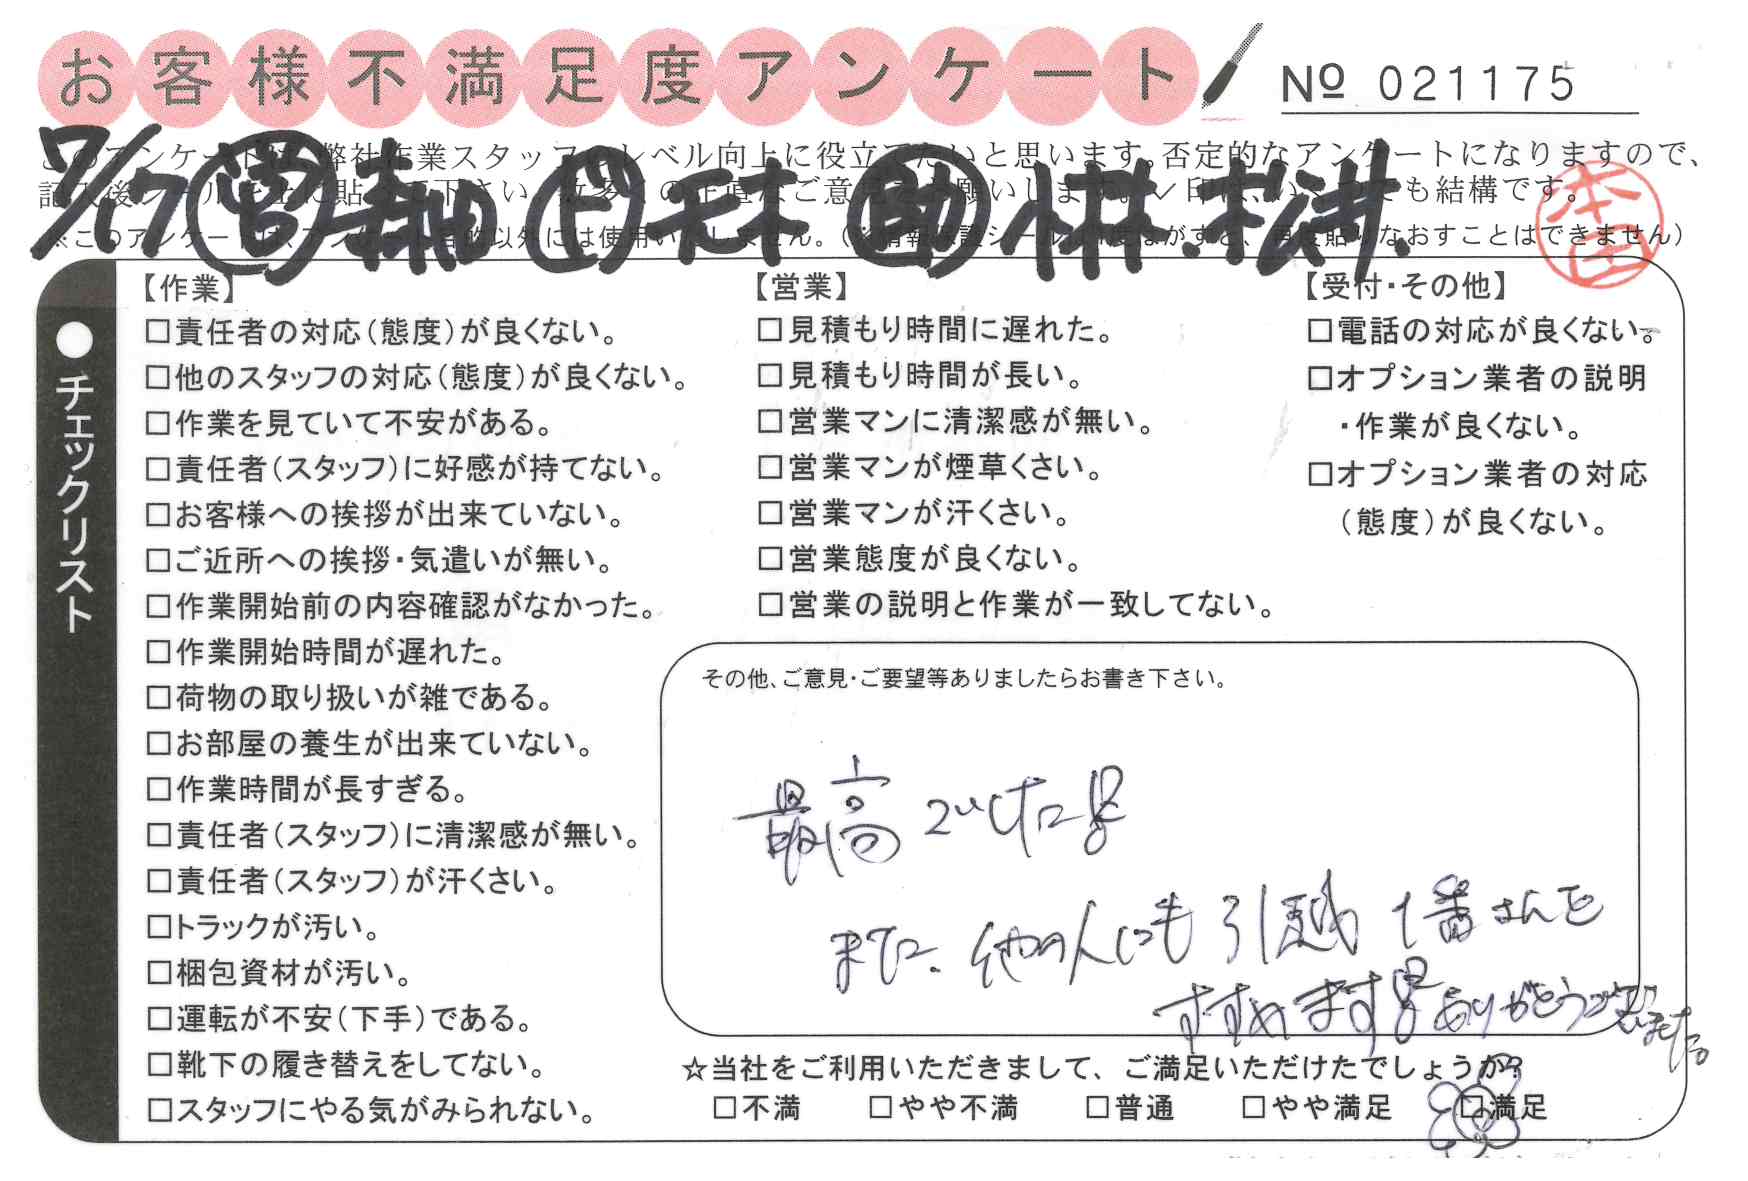 お客様不満足度アンケート
№ 021175
このアンケートは、弊社作業スタッフのレベル向上に役立てたいと思います。否定的なアンケートになりますので、
記入後シールを上に貼って下さい。数多くの正直なご意見をお願いします。✓印は、いくつでも結構です。
※このアンケートは、アンケート目的以外には使用いたしません。(※情報保護シールは1度はがすと、再度貼りなおすことはできません)
7/17 営 森田 ド 元木 助 小林.松井.
本田
●チェックリスト
【作業】
□責任者の対応(態度)が良くない。
□他のスタッフの対応(態度)が良くない。
□作業を見ていて不安がある。
□責任者(スタッフ)に好感が持てない。
□お客様への挨拶が出来ていない。
□ご近所への挨拶・気遣いが無い。
□作業開始前の内容確認がなかった。
□作業開始時間が遅れた。
□荷物の取り扱いが雑である。
□お部屋の養生が出来ていない。
□作業時間が長すぎる。
□責任者(スタッフ)に清潔感が無い。
□責任者(スタッフ)が汗くさい。
□トラックが汚い。
□梱包資材が汚い。
□運転が不安(下手)である。
□靴下の履き替えをしてない。
□スタッフにやる気がみられない。
【営業】
□見積もり時間に遅れた。
□見積もり時間が長い。
□営業マンに清潔感が無い。
□営業マンが煙草くさい。
□営業マンが汗くさい。
□営業態度が良くない。
□営業の説明と作業が一致してない。
【受付・その他】
□電話の対応が良くない。
□オプション業者の説明
・作業が良くない。
□オプション業者の対応
(態度)が良くない。
その他、ご意見・ご要望等ありましたらお書き下さい。
最高でした!!
また、他の人にも引越1番さんを
すすめます!!ありがとうございました
☆当社をご利用いただきまして、ご満足いただけたでしょうか?
□不満 □やや不満 □普通 □やや満足 □満足